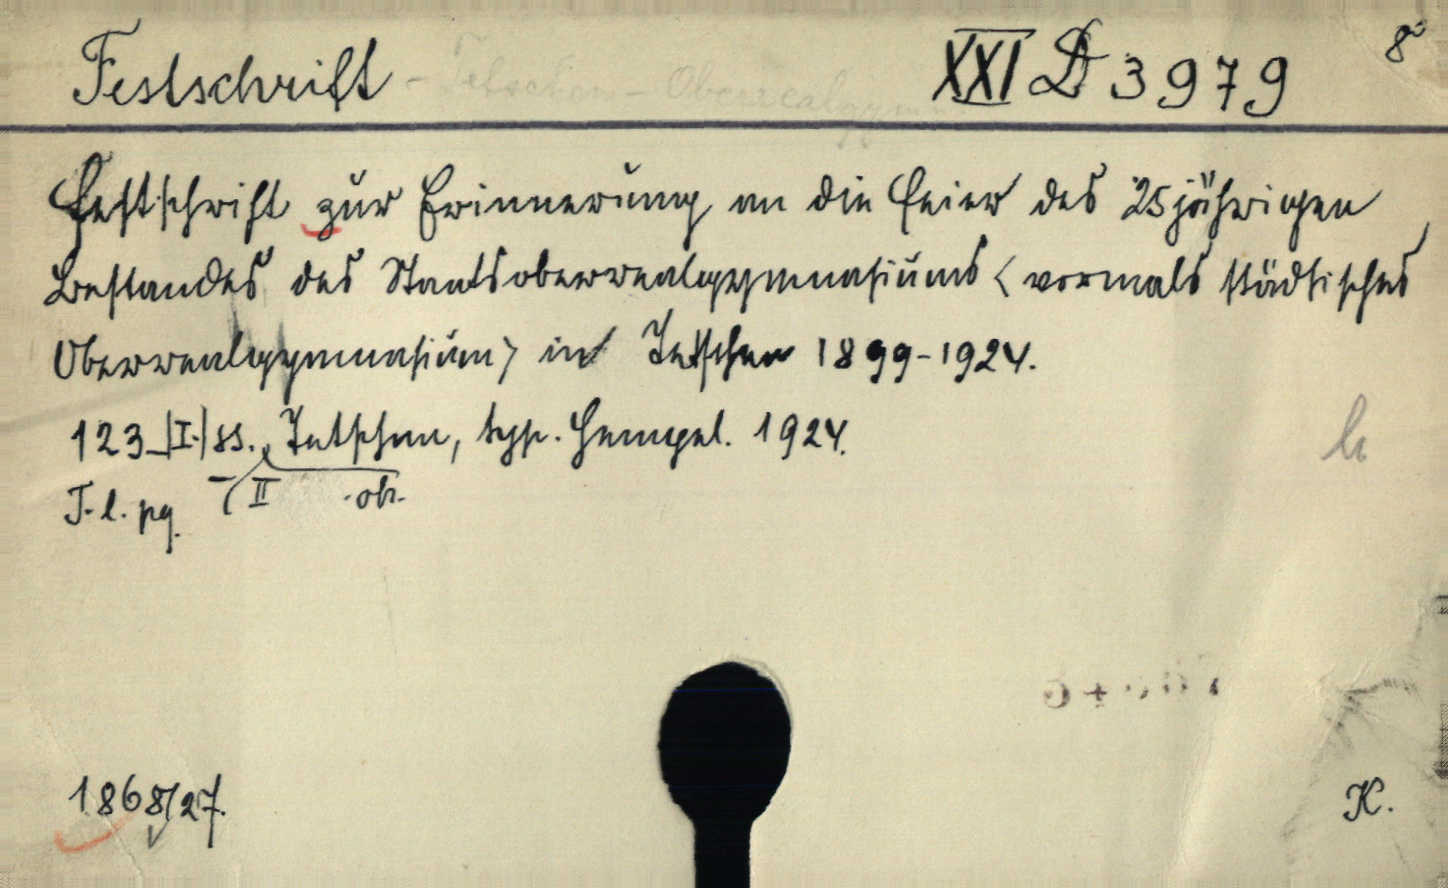 Festschrift - Tetschen - Oberrealgymn XXI D 3979 8°
Festschrift zur Erinnerung an die Feier des 25jährigen
Bestandes des Staatsoberrealgymnasiums <vormals städtisches
Oberrealgymnasium> in Tetschen 1899-1924.
123 |I.| ss. Tetschen, typ. Hempel. 1924.
-/ II ob.
T. l. pg.
K.
1868/27.